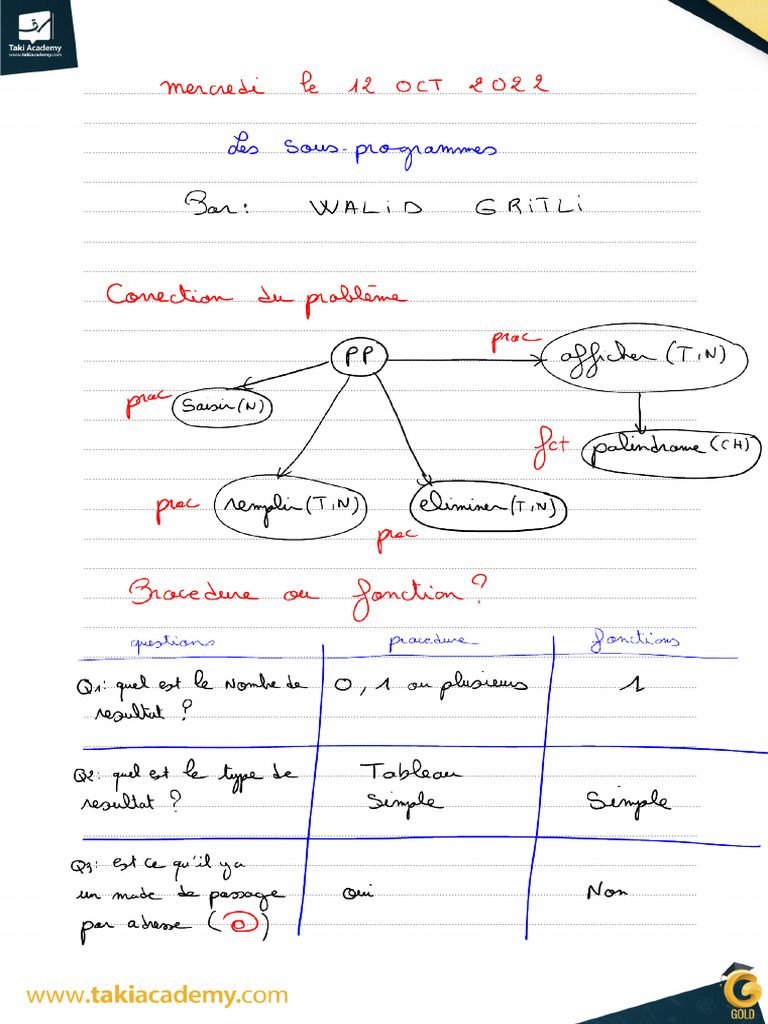 Taki Academy
www.takiacademy.com
mercredi le 12 OCT 2022
Les sous-programmes
Par: WALID GRITLI
Correction du problème
PP
proc
afficher (T,N)
proc
Saisir(N)
fct
palindrome (CH)
proc
remplir (T,N)
eliminer (T,N)
proc
Procedure ou fonction ?
questions procedure fonctions
Q1: quel est le Nombre de
resultat ?
0, 1 ou plusieurs
1
Q2: quel est le type de
resultat ?
Tableau
Simple
Simple
Q3: est ce qu'il ya
un mode de passage
par adresse (@)
oui
Non
www.takiacademy.com
GOLD